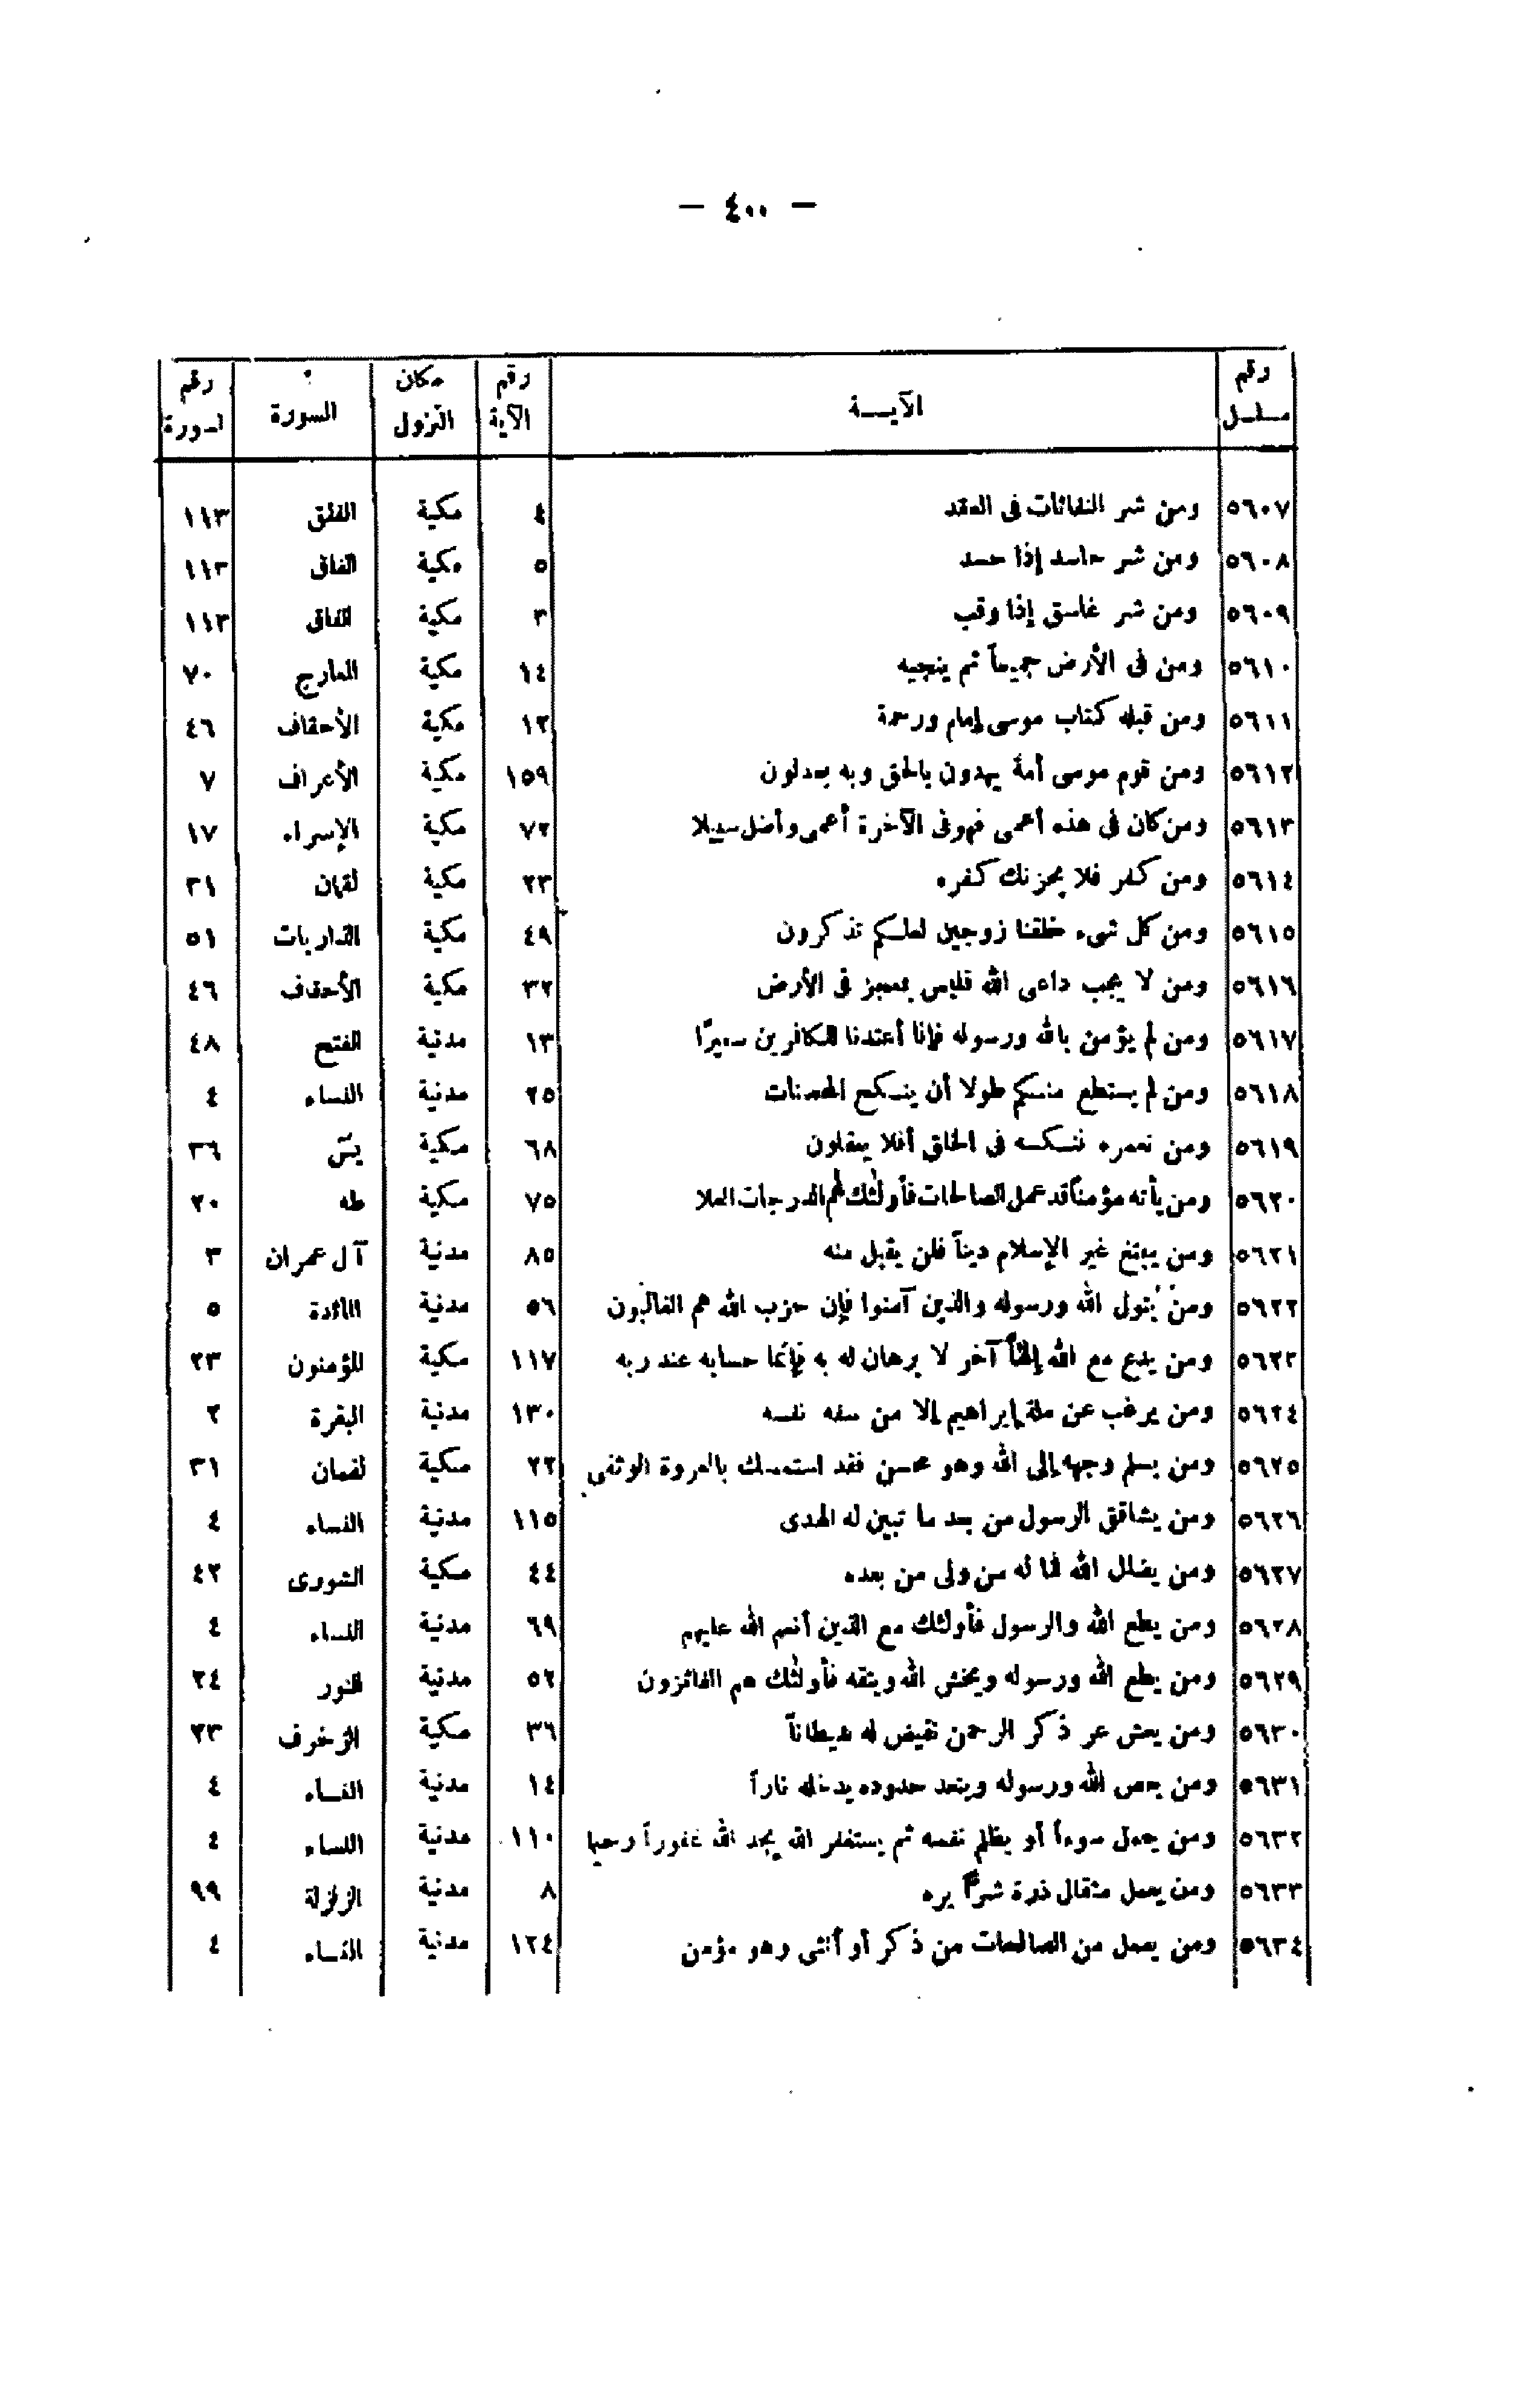 — ٤٠٠ —
رقم مسلسل | الآيــة | رقم الآية | مكان النزول | السورة | رقم السورة
٥٦٠٧ | ومن شر النفاثات فى العقد | ٤ | مكية | الفلق | ١١٣
٥٦٠٨ | ومن شر حاسد إذا حسد | ٥ | مكية | الفلق | ١١٣
٥٦٠٩ | ومن شر غاسق إذا وقب | ٣ | مكية | الفلق | ١١٣
٥٦١٠ | ومن فى الأرض جميعاً ثم ينجيه | ١٤ | مكية | المعارج | ٧٠
٥٦١١ | ومن قبله كتاب موسى إمام ورحمة | ١٢ | مكية | الأحقاف | ٤٦
٥٦١٢ | ومن قوم موسى أمة يهدون بالحق وبه يعدلون | ١٥٩ | مكية | الأعراف | ٧
٥٦١٣ | ومن كان فى هذه أعمى فهو فى الآخرة أعمى وأضل سبيلا | ٧٢ | مكية | الإسراء | ١٧
٥٦١٤ | ومن كفر فلا يحزنك كفره | ٢٣ | مكية | لقمان | ٣١
٥٦١٥ | ومن كل شىء خلقنا زوجين لعلكم تذكرون | ٤٩ | مكية | الذاريات | ٥١
٥٦١٦ | ومن لا يجب داعى الله فليس بمعجز فى الأرض | ٣٢ | مكية | الأحقاف | ٤٦
٥٦١٧ | ومن لم يؤمن بالله ورسوله فإنا أعتدنا للكافرين سعيرًا | ١٣ | مدنية | الفتح | ٤٨
٥٦١٨ | ومن لم يستطع منكم طولا أن ينكح المحصنات | ٢٥ | مدنية | النساء | ٤
٥٦١٩ | ومن نعمره ننكسه فى الخلق أفلا يعقلون | ٦٨ | مكية | يسٓ | ٣٦
٥٦٢٠ | ومن يأته مؤمناً قد عمل الصالحات فأولئك لهم الدرجات العلا | ٧٥ | مكية | طه | ٢٠
٥٦٢١ | ومن يبتغ غير الإسلام ديناً فلن يقبل منه | ٨٥ | مدنية | آل عمران | ٣
٥٦٢٢ | ومن يتول الله ورسوله والذين آمنوا فإن حزب الله هم الغالبون | ٥٦ | مدنية | المائدة | ٥
٥٦٢٣ | ومن يدع مع الله إلهاً آخر لا برهان له به فإنما حسابه عند ربه | ١١٧ | مكية | المؤمنون | ٢٣
٥٦٢٤ | ومن يرغب عن ملة إبراهيم إلا من سفه نفسه | ١٣٠ | مدنية | البقرة | ٢
٥٦٢٥ | ومن يسلم وجهه إلى الله وهو محسن فقد استمسك بالعروة الوثقى | ٢٢ | مكية | لقمان | ٣١
٥٦٢٦ | ومن يشاقق الرسول من بعد ما تبين له الهدى | ١١٥ | مدنية | النساء | ٤
٥٦٢٧ | ومن يضلل الله فما له من ولى من بعده | ٤٤ | مكية | الشورى | ٤٢
٥٦٢٨ | ومن يطع الله والرسول فأولئك مع الذين أنعم الله عليهم | ٦٩ | مدنية | النساء | ٤
٥٦٢٩ | ومن يطع الله ورسوله ويخش الله ويتقه فأولئك هم الفائزون | ٥٢ | مدنية | النور | ٢٤
٥٦٣٠ | ومن يعش عن ذكر الرحمن نقيض له شيطاناً | ٣٦ | مكية | الزخرف | ٢٣
٥٦٣١ | ومن يعص الله ورسوله ويتعد حدوده يدخله ناراً | ١٤ | مدنية | النساء | ٤
٥٦٣٢ | ومن يعمل سوءاً أو يظلم نفسه ثم يستغفر الله يجد الله غفوراً رحيما | ١١٠ | مدنية | النساء | ٤
٥٦٣٣ | ومن يعمل مثقال ذرة شراً يره | ٨ | مدنية | الزلزلة | ٩٩
٥٦٣٤ | ومن يعمل من الصالحات من ذكر أو أنثى وهو مؤمن | ١٢٤ | مدنية | النساء | ٤